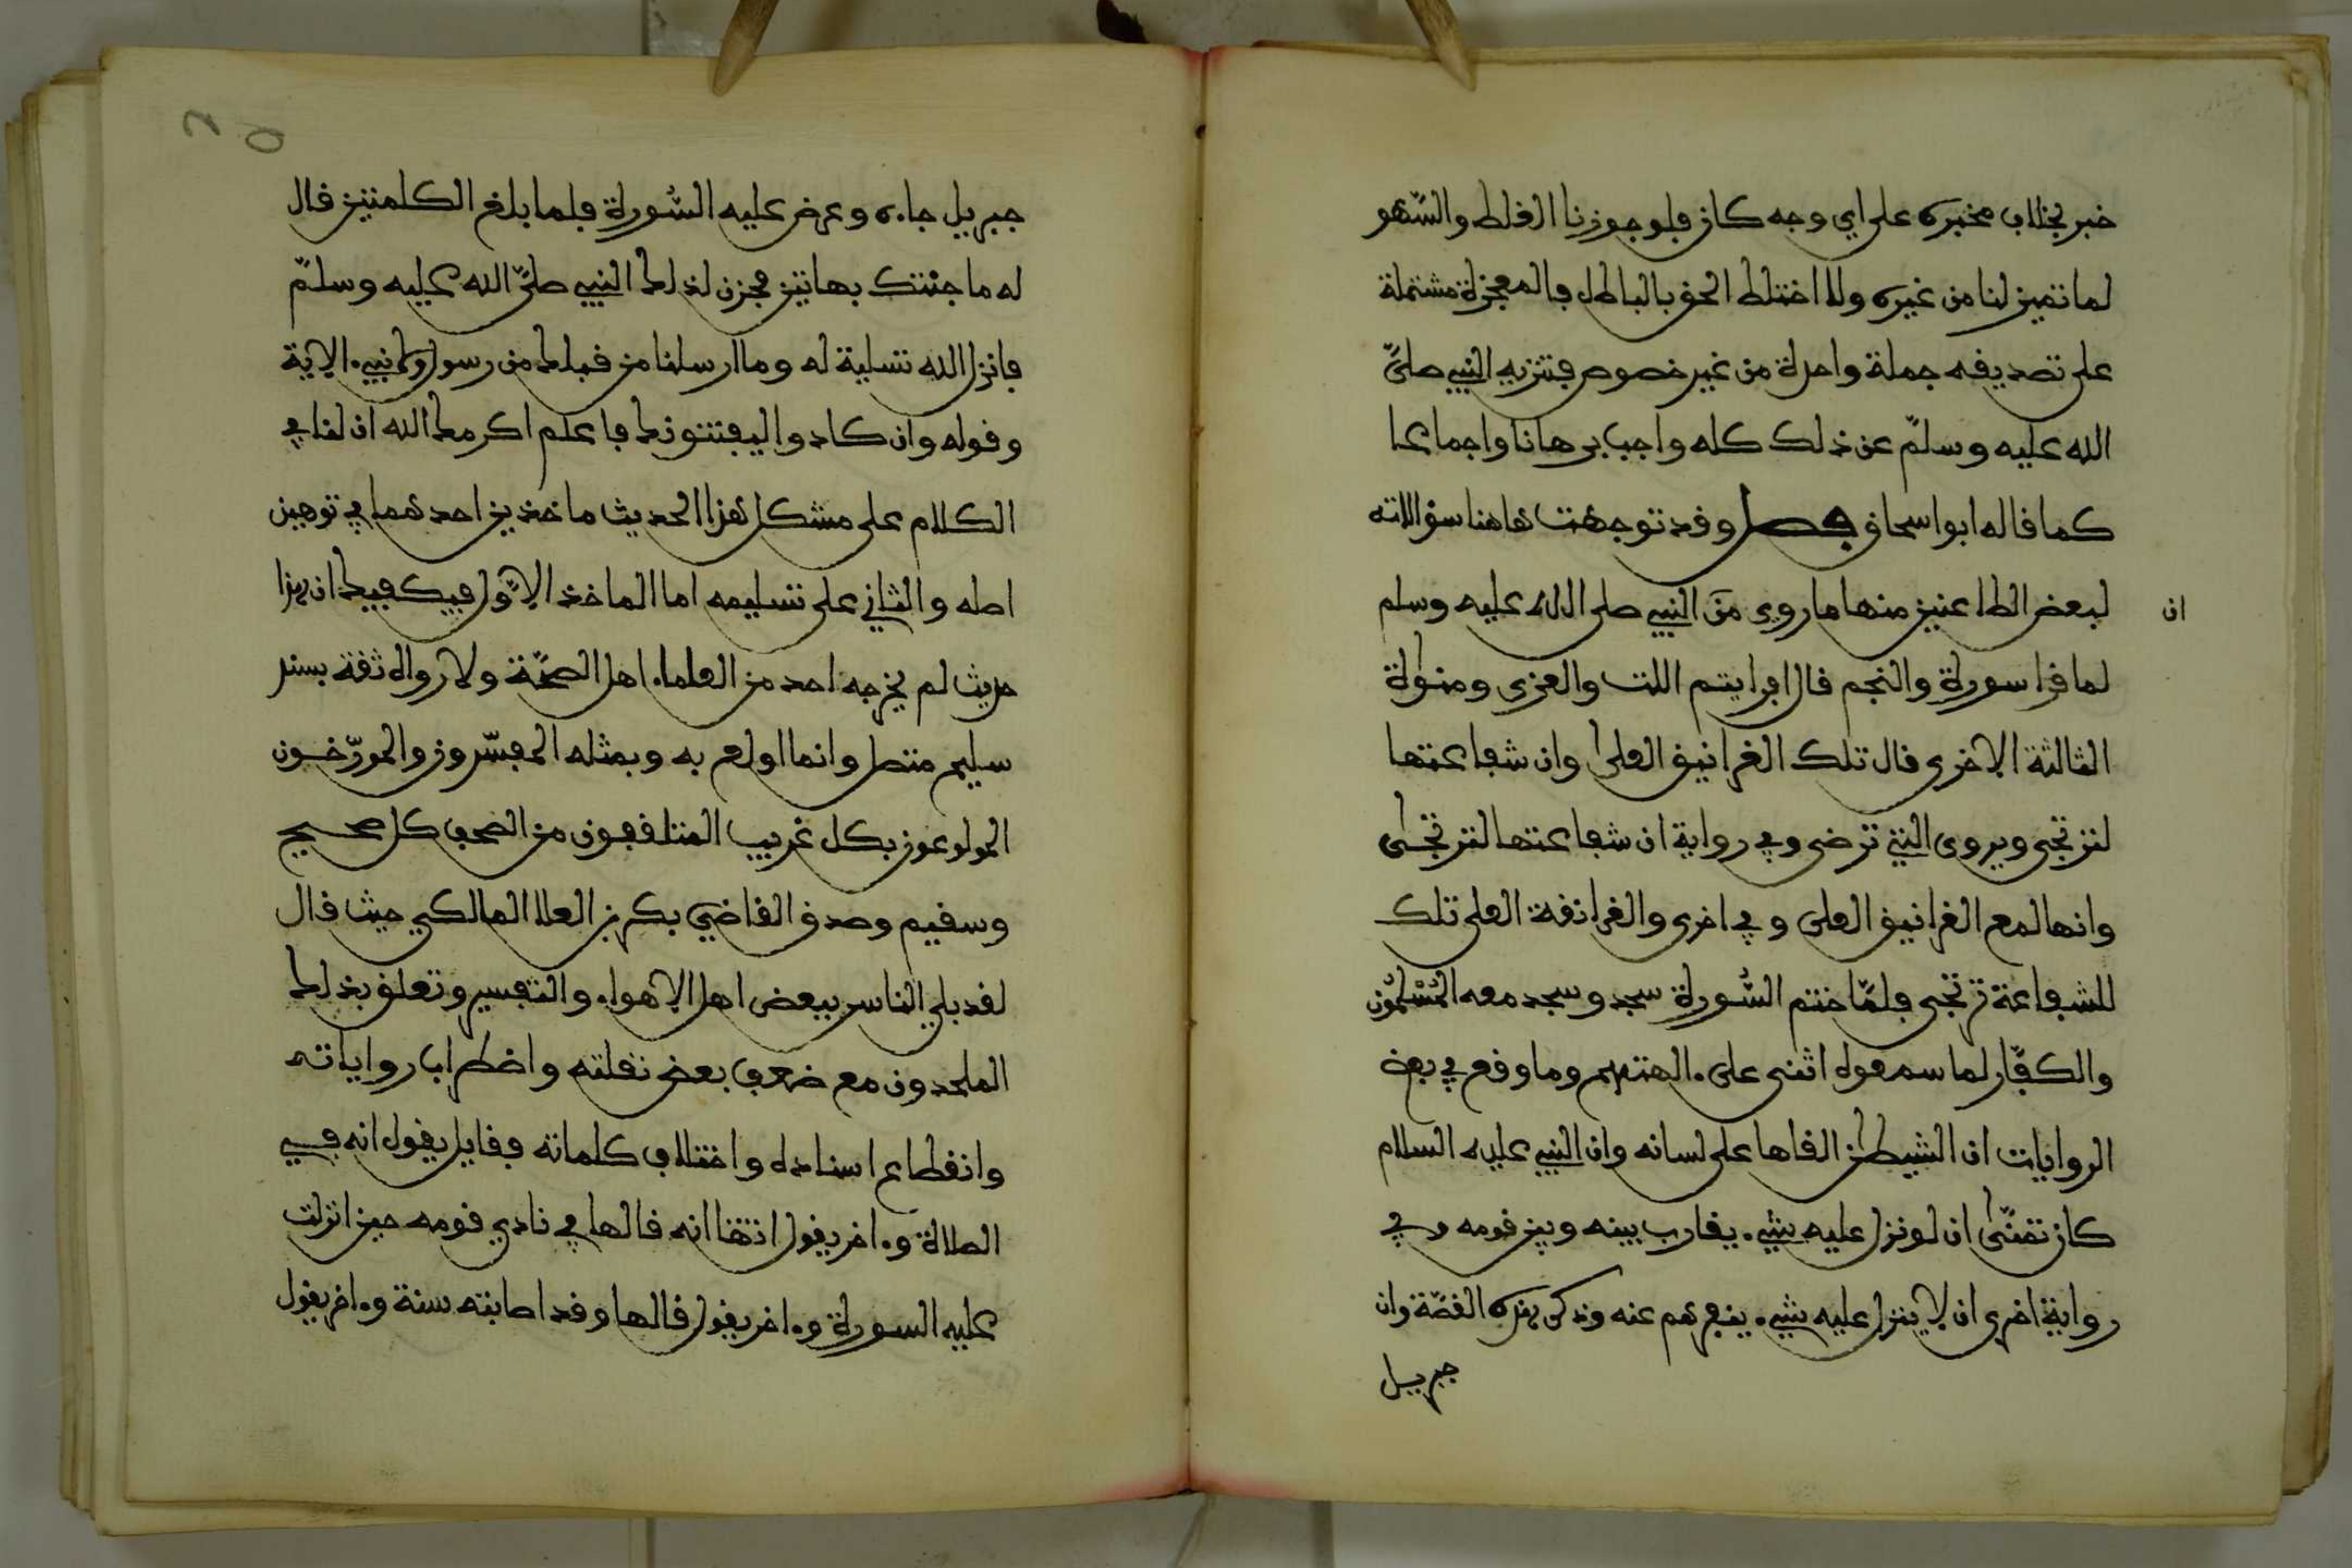 خبر بخلاف مخبره على اي وجه كان فلو جوزنا الغلط والسّهو
لما تميز لنا من غيره ولا اختلط الحق بالباطل فالمعجزة مشتملة
على تصديقه جملة واحدة من غير خصوص فتنزيه النبي صلّى
الله عليه وسلّم عن ذلك كله واجب برهانا واجماعا
كما قاله ابو اسحاق فصل وقد توجهت هاهنا سؤالاته
لبعض الطاعنين منها ما روي من النبي صلى الله عليه وسلم
ان
لما قرا سورة والنجم قال افرايتم اللت والعزى ومنوة
الثالثة الاخرى قال تلك الغرانيق العلى وان شفاعتها
لترتجى ويروى التي ترضى وفي رواية ان شفاعتها لترتجى
وانها لمع الغرانيق العلى وفي اخرى والغرانقة العلى تلك
للشفاعة ترتجى فلمّا ختم السّورة سجد وسجد معه المُسْلِمُون
والكفّار لما سمعوه اثنى على ءالهتهم وما وقع في بعض
الروايات ان الشيطن القاها على لسانه وان النبي عليه السلام
كان تمنّى ان لو نزل عليه شيء يقارب بينه وبين قومه وفي
رواية اخرى ان لا ينزل عليه شيء ينفرهم عنه وذكر هذه القصّة وان
جبريل
جبريل جاءه وعرض عليه السُّورة فلما بلغ الكلمتين قال
له ما جئتك بهاتين فحزن لذلك النبي صلّى الله عليه وسلّم
فانزل الله تسلية له وما ارسلنا من قبلك من رسول ولا نبيء الاية
وقوله وان كادوا ليفتنونك فاعلم اكرمك الله ان لنا في
الكلام على مشكل هذا الحديث ماخذين احدهما في توهين
اصله والثاني على تسليمه اما الماخذ الاوّل فيكفيك ان هذا
حديث لم يخرجه احد من العلماء اهل الصحّة ولا رواه ثقة بسند
سليم متصل وانما اولع به وبمثله المفسّرون والمورّخون
المولوعون بكل غريب المتلقفون من الصحف كل صحيح
وسقيم وصدق القاضي بكر بن العلا المالكي حيث قال
لقد بلي الناس ببعض اهل الاهواء والتفسير وتعلق بذلك
الملحدون مع ضعف بعض نقلته واضطراب رواياته
وانقطاع اسناده واختلاف كلماته فقايل يقول انه في
الصلاة وءاخر يقول انتقا انه قالها في نادي قومه حين انزلت
عليه السورة وءاخر يقول قالها وقد اصابته سنة وءاخر يقول